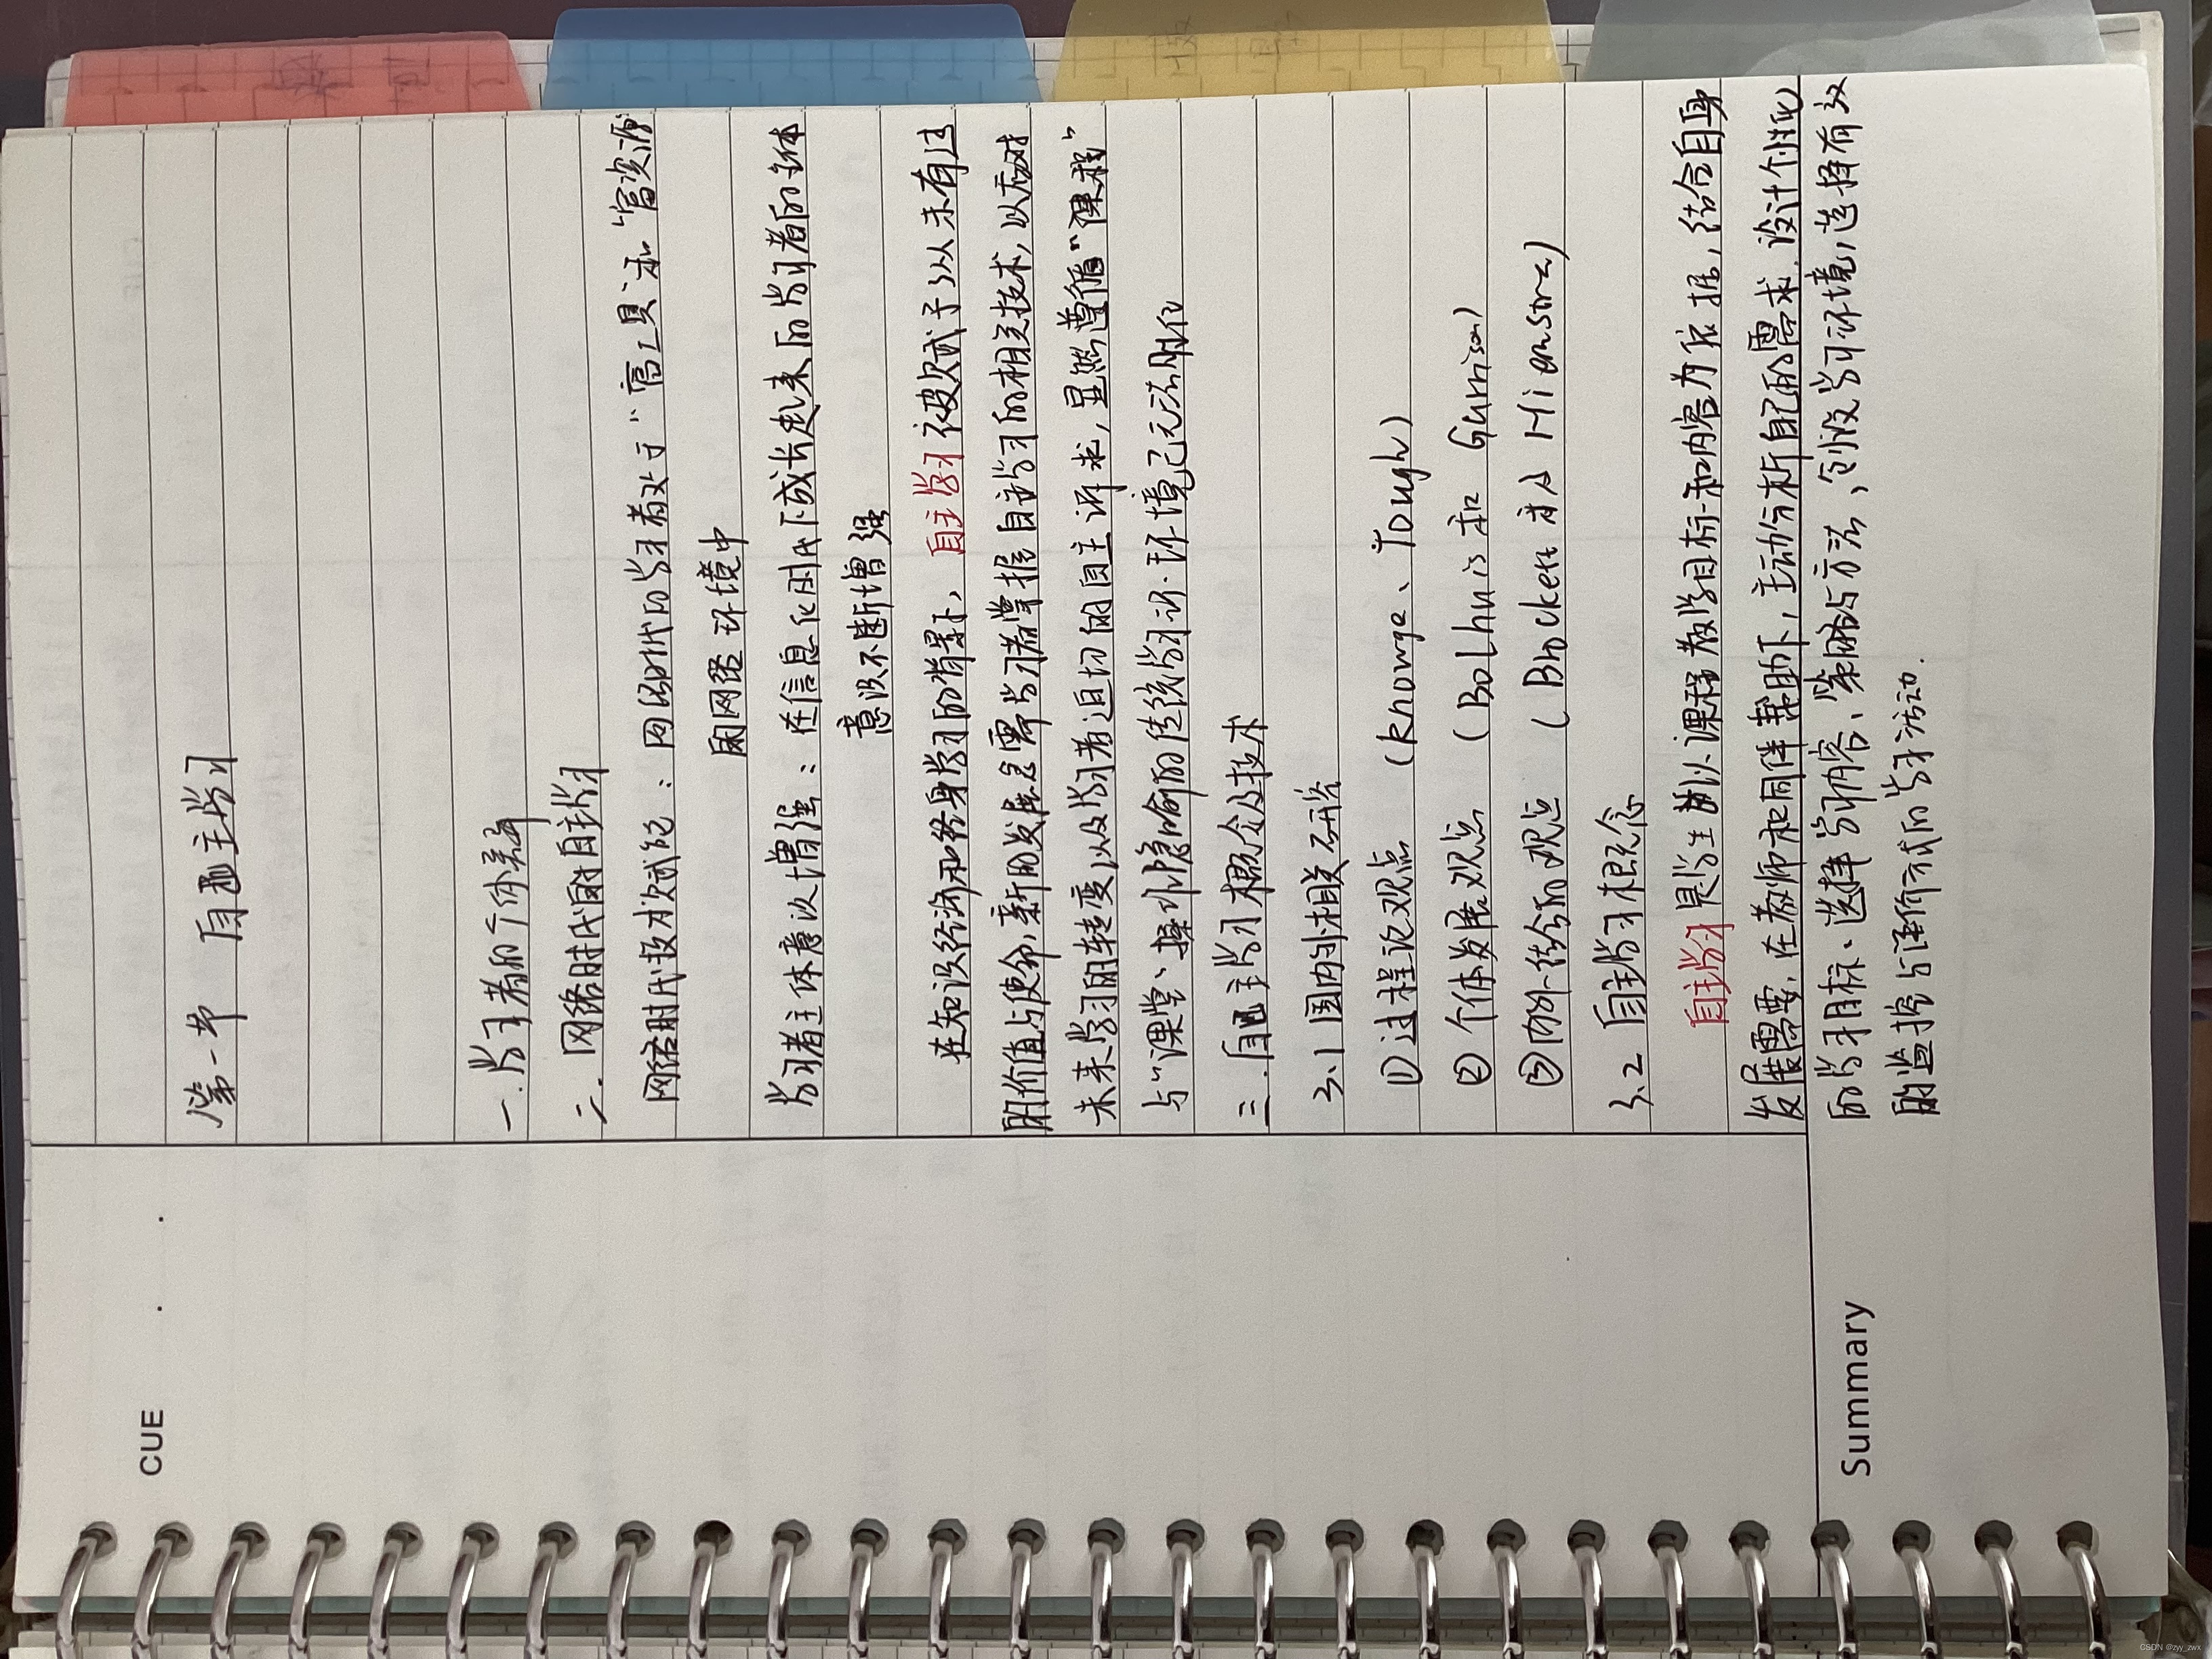 CUE
第一节 自主学习
一.学习者的个体差异
二.网络时代自主学习
网络时代技术赋能：网络时代的学习者处于“富工具”和“富资源”
网络环境中
学习者主体意识增强：在信息化时代下成长起来的学习者的主体
意识不断增强
在知识经济和终身学习的背景下，自主学习被赋予了从未有过
的价值与使命，新的发展愈需学习者掌握自主学习的相关技术，以应对
未来学习的转变以及学习者迫切的自主诉求，显然遵循“课程”
与“课堂、操作隐喻的传统学习环境已无法胜任
三.自主学习概念及技术
3.1 国内外相关研究
①过程论观点 (Knowge、Tough)
②个体发展观点 (Bolhuis和 Garrison)
③内外结合的观点 (Brockett 和 Hiemstra)
3.2 自主学习概念
自主学习是学生以课程教学目标和内容为依据，结合自身
发展需要，在教师和同伴帮助下，主动分析自己的需求，设计个性化
的学习目标、选择学习内容、策略与方法、创设学习环境，选择有效
的监控与评价方式的学习活动.
Summary
CSDN @zyy_zwx